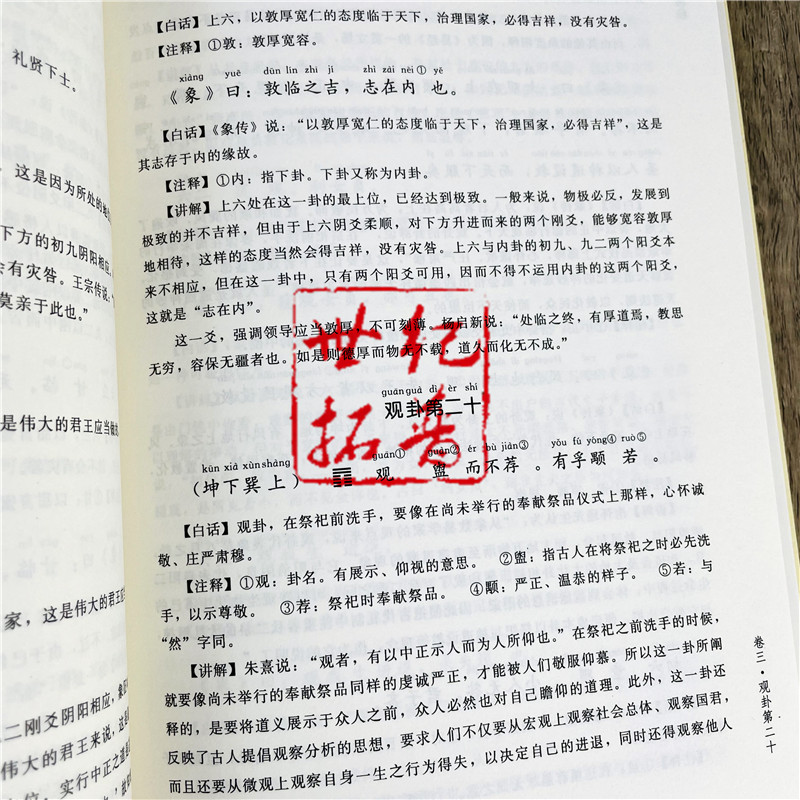 礼贤下士。
这是因为所处的
下方的初九阴阳相应，
会有灾咎。王宗传说：
莫亲于此也。”
是伟大的君王应当做
家，这是伟大的君王应
二刚爻阴阳相应，象
伟大的君王来说，这
位，实行中正之道
【白话】上六，以敦厚宽仁的态度临于天下，治理国家，必得吉祥，没有灾咎。
【注释】①敦：敦厚宽容。
xiàng yuē dūn lín zhī jí zhì zài nèi① yě
《象》曰：敦临之吉，志在内 也。
【白话】《象传》说：“以敦厚宽仁的态度临于天下，治理国家，必得吉祥”，这是
其志存于内的缘故。
【注释】①内：指下卦。下卦又称为内卦。
【讲解】上六处在这一卦的最上位，已经达到极致。一般来说，物极必反，发展到
极致的并不吉祥，但由于上六阴爻柔顺，对下方升进而来的两个刚爻，能够宽容敦厚
地相待，这样的态度当然会得吉祥，没有灾咎。上六与内卦的初九、九二两个阳爻本
来不相应，但在这一卦中，只有两个阳爻可用，因而不得不运用内卦的这两个阳爻，
这就是“志在内”。
这一爻，强调领导应当敦厚，不可刻薄。杨启新说：“处临之终，有厚道焉，教思
无穷，容保无疆者也。如是则德厚而物无不载，道久而化无不成。”
世纪
拓普
guān guà dì èr shí
观卦第二十
kūn xià xùn shàng guān① guàn② ér bù jiàn③ yǒu fú yóng④ ruò⑤
（坤下巽上）䷓ 观 盥 而不荐 。有孚颙 若 。
【白话】观卦，在祭祀前洗手，要像在尚未举行的奉献祭品仪式上那样，心怀诚
敬、庄严肃穆。
【注释】①观：卦名。有展示、仰视的意思。 ②盥：指古人在将祭祀之时必先洗
手，以示尊敬。 ③荐：祭祀时奉献祭品。 ④颙：严正、温恭的样子。 ⑤若：与
“然”字同。
【讲解】朱熹说：“观者，有以中正示人而为人所仰也。”在祭祀之前洗手的时候，
就要像尚未举行的奉献祭品同样的虔诚严正，才能被人们敬服仰慕。所以这一卦所阐
释的，是要将道义展示于众人之前，众人必然也对自己瞻仰的道理。此外，这一卦还
反映了古人提倡观察分析的思想，要求人们不仅要从宏观上观察社会总体、观察国君，
而且还要从微观上观察自身一生之行为得失，以决定自己的进退，同时还得观察他人
卷三·观卦第二十